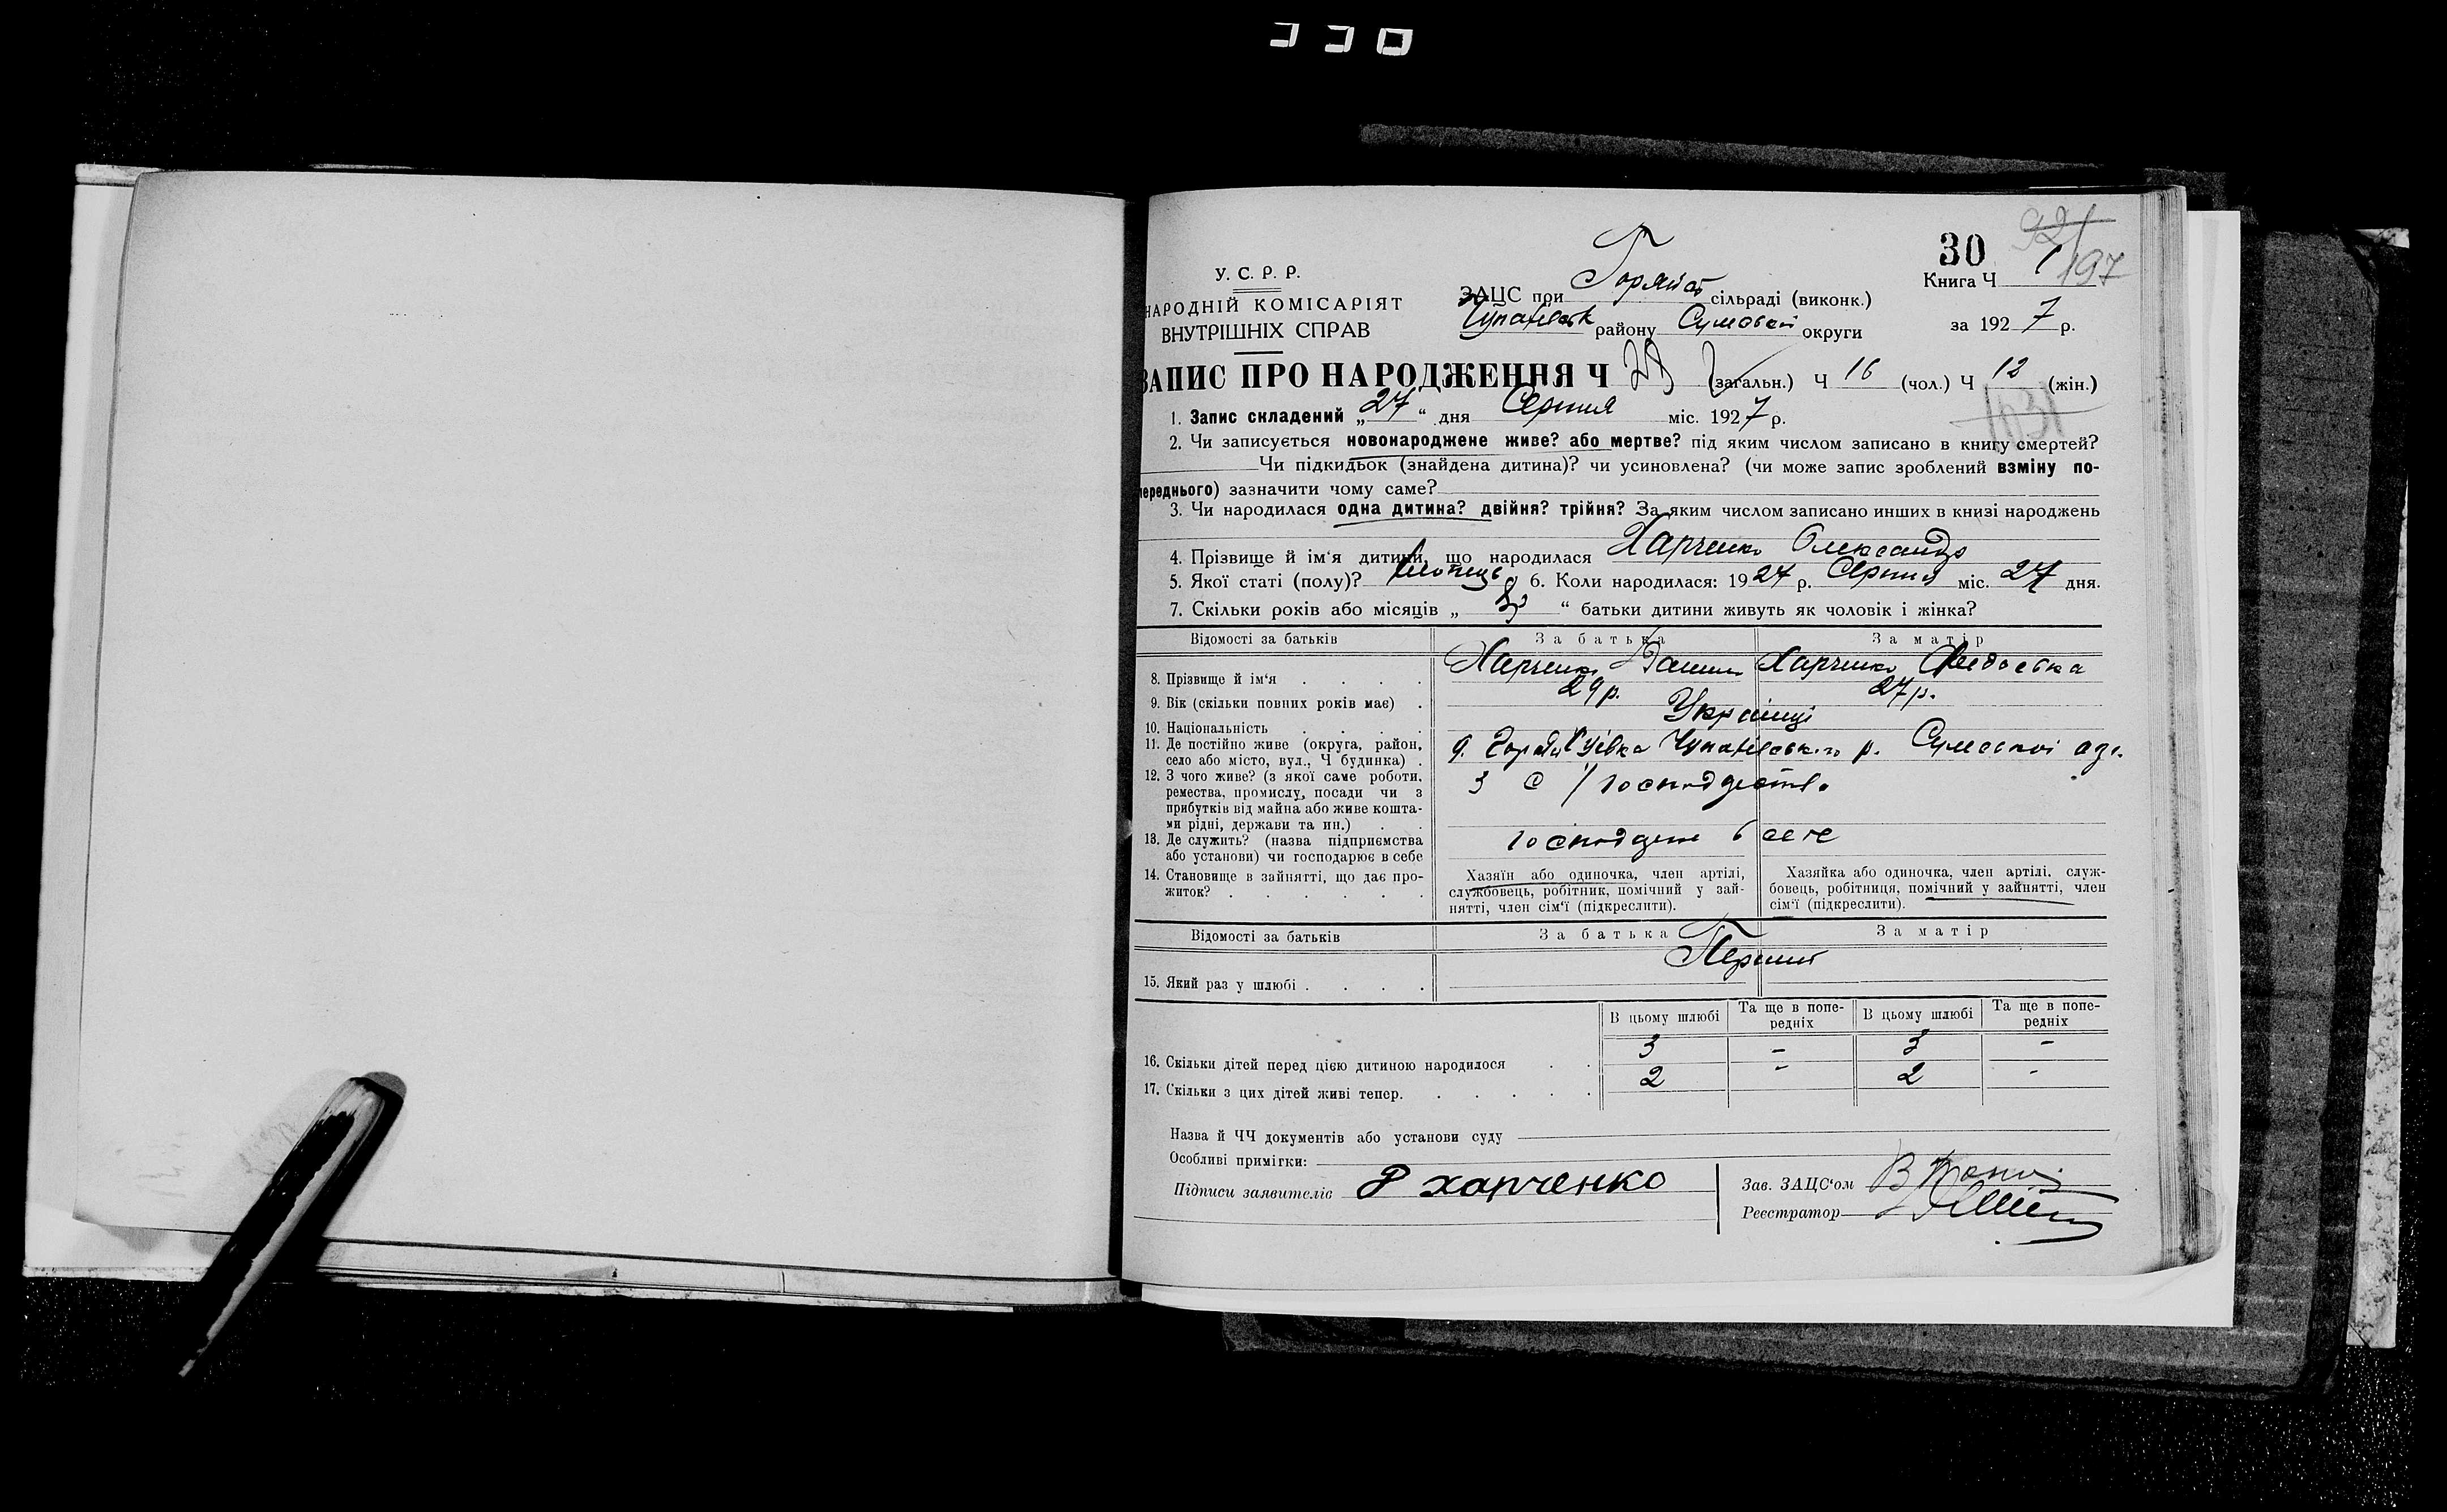 30
92
197
У. С. Р. Р.
НАРОДНІЙ КОМІСАРІЯТ
ВНУТРІШНІХ СПРАВ
Книга Ч 1
ЗАЦС при сільраді (виконк.)
району Сумской округи
за 1927 р.
ЗАПИС ПРО НАРОДЖЕННЯ Ч (загальн.) Ч 16 (чол.) Ч 12 (жін.)
1. Запис складений „27“ дня Серпня міс. 1927 р.
2. Чи записується новонароджене живе? або мертве? під яким числом записано в книгу смертей?
Чи підкидьок (знайдена дитина)? чи усиновлена? (чи може запис зроблений взміну по-
переднього) зазначити чому саме?
3. Чи народилася одна дитина? двійня? трійня? За яким числом записано инших в книзі народжень
4. Прізвище й ім‘я дитини, що народилася Харченко Олександр
5. Якої статі (полу)? хлопець 6. Коли народилася: 1927 р. Серпня міс. 27 дня.
7. Скільки років або місяців „ “ батьки дитини живуть як чоловік і жінка?
Відомості за батьків За батька За матір
8. Прізвище й ім‘я . . . . Харченко Данило Харченко Федоська
9. Вік (скільки повних років має) . 29 р. 27 р.
10. Національність . . . . Українці
11. Де постійно живе (округа, район,
село або місто, вул., Ч будинка) . Сумської окр.
12. З чого живе? (з якої саме роботи,
ремества, промислу, посади чи з
прибутків від майна або живе кошта-
ми рідні, держави та ин.) . . з с/господарства
13. Де служить? (назва підприємства
або установи) чи господарює в себе господарює в себе
14. Становище в зайнятті, що дає про-
житок? . . . . . .
Хазяїн або одиночка, член артілі,
службовець, робітник, помічний у зай-
нятті, член сім‘ї (підкреслити).
Хазяйка або одиночка, член артілі, служ-
бовець, робітниця, помічний у зайнятті, член
сім‘ї (підкреслити).
Відомості за батьків За батька За матір
15. Який раз у шлюбі . . . . Перший
В цьому шлюбі Та ще в попе-
редніх В цьому шлюбі Та ще в попе-
редніх
16. Скільки дітей перед цією дитиною народилося . . 3 - 3 -
17. Скільки з цих дітей живі тепер. . . . . . 2 - 2 -
Назва й ЧЧ документів або установи суду
Особливі примітки:
Підписи заявителів Харченко
Зав. ЗАЦС‘ом
Реєстратор